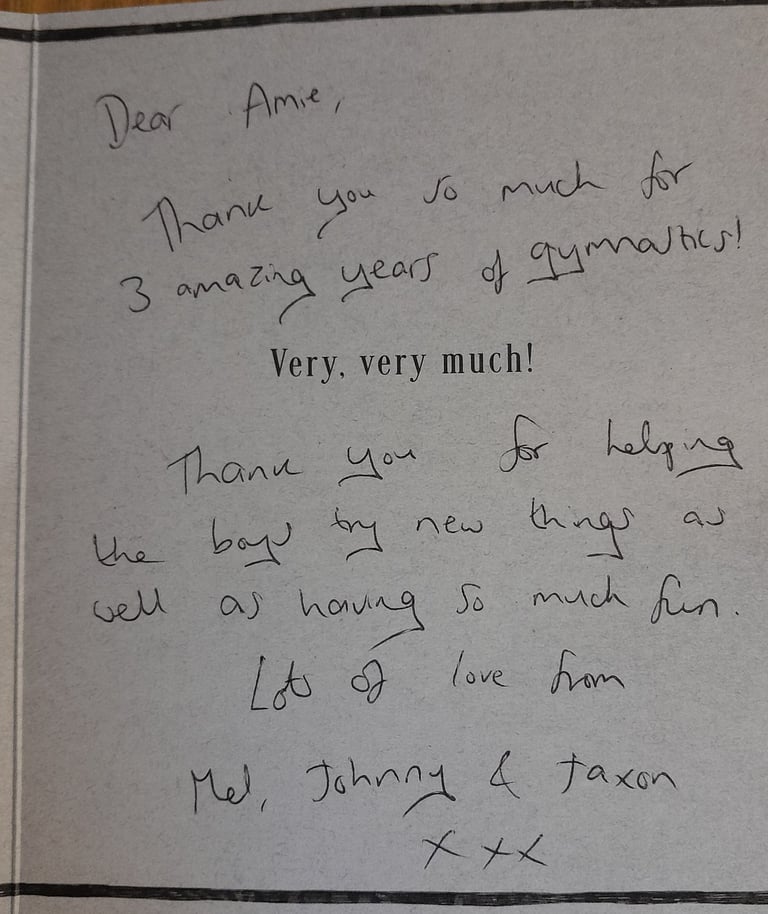 Dear Amie,
Thank you so much for
3 amazing years of gymnastics!
Very, very much!
Thank you for helping
the boys try new things as
well as having so much fun.
Lots of love from
Mel, Johnny & Jaxon
x xx